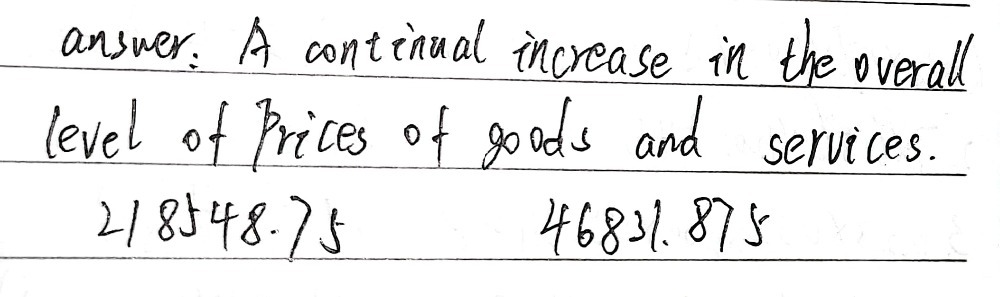 answer: A continual increase in the overall
level of Prices of goods and services.
218548.75 46831.875